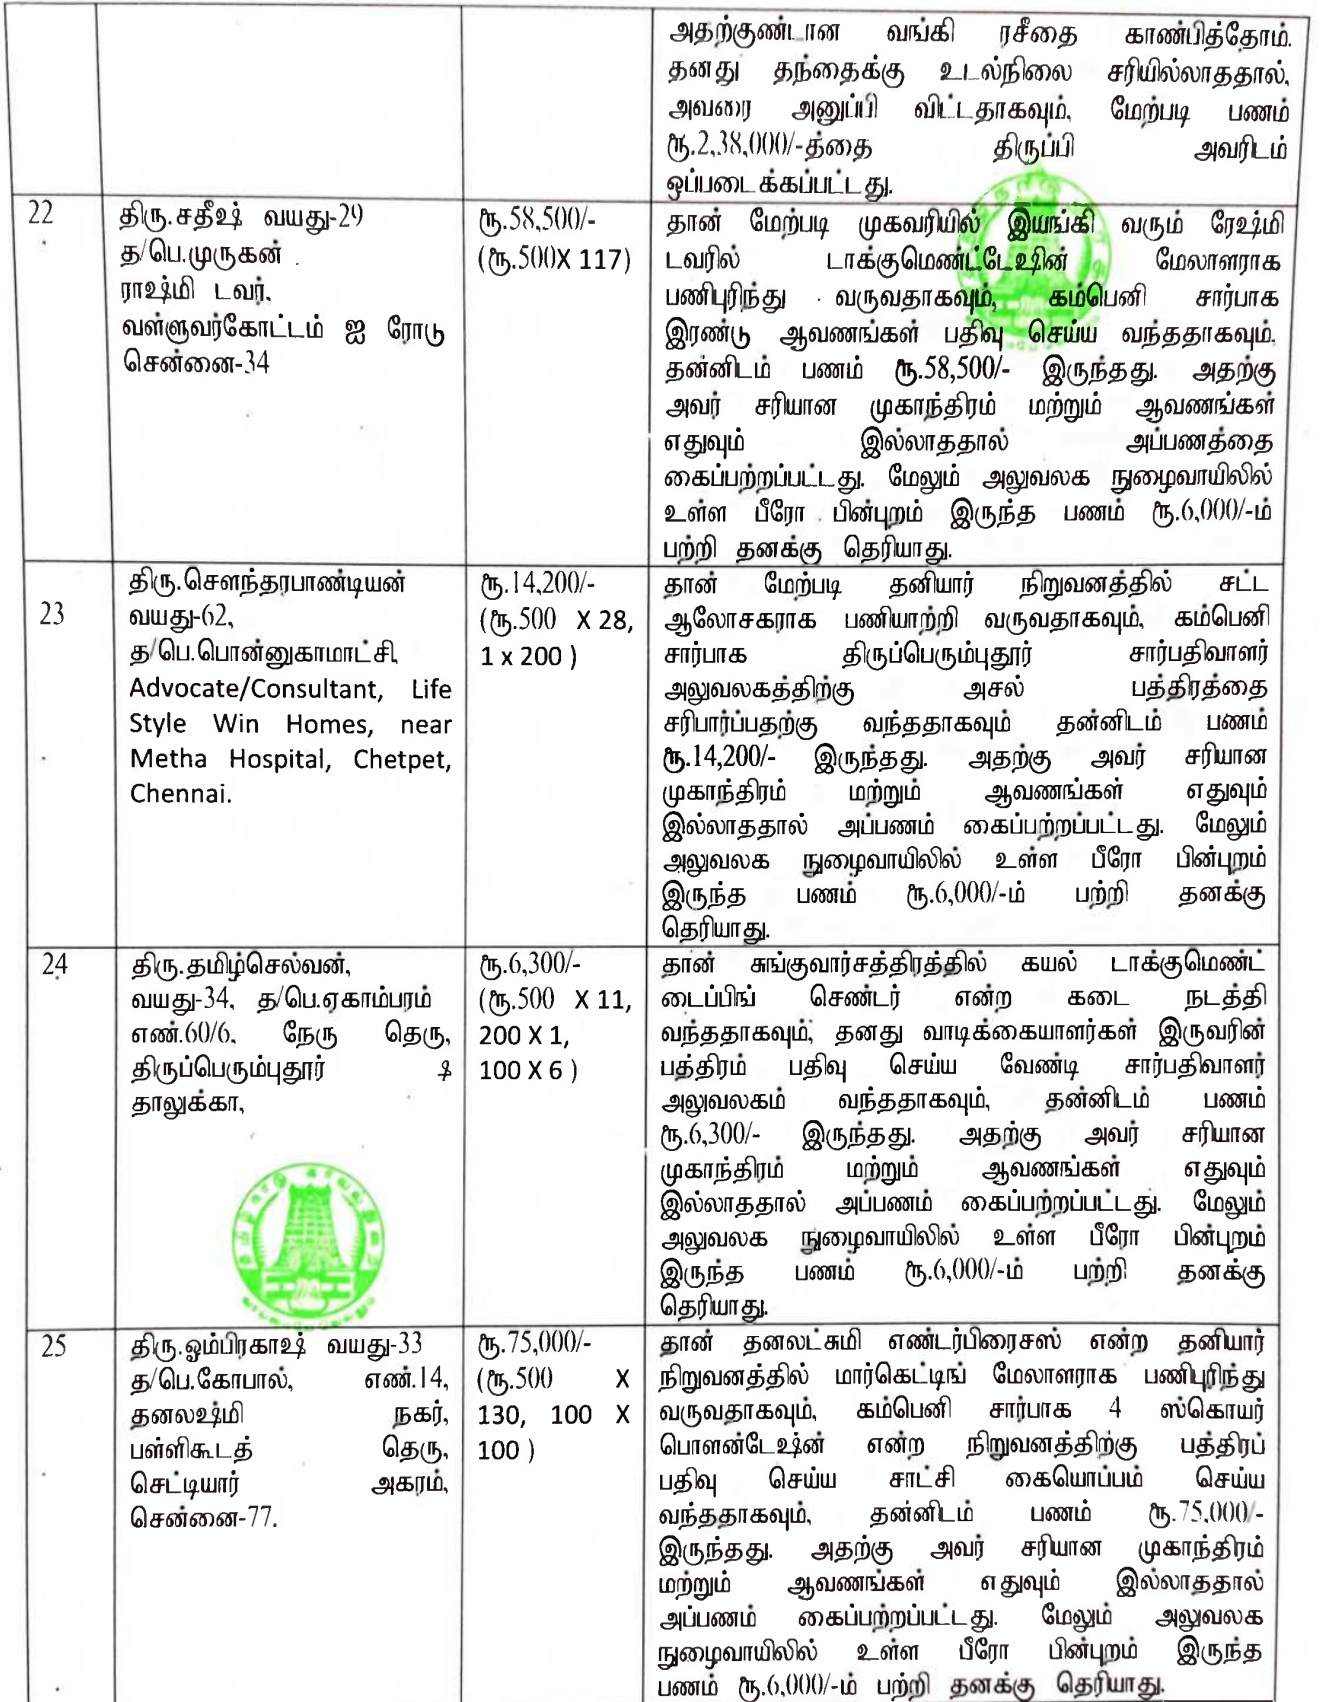 அதற்குண்டான வங்கி ரசீதை காண்பித்தோம்.
தனது தந்தைக்கு உடல்நிலை சரியில்லாததால்,
அவரை அனுப்பி விட்டதாகவும், மேற்படி பணம்
ரூ.2,38,000/-த்தை திருப்பி அவரிடம்
ஒப்படைக்கப்பட்டது.
22
திரு.சதீஷ் வயது-29
த/பெ.முருகன்
ராஷ்மி டவர்,
வள்ளுவர்கோட்டம் ஐ ரோடு
சென்னை-34
ரூ.58,500/-
(ரூ.500X 117)
தான் மேற்படி முகவரியில் இயங்கி வரும் ரேஷ்மி
டவரில் டாக்குமெண்ட்டேஷின் மேலாளராக
பணிபுரிந்து வருவதாகவும், கம்பெனி சார்பாக
இரண்டு ஆவணங்கள் பதிவு செய்ய வந்ததாகவும்,
தன்னிடம் பணம் ரூ.58,500/- இருந்தது. அதற்கு
அவர் சரியான முகாந்திரம் மற்றும் ஆவணங்கள்
எதுவும் இல்லாததால் அப்பணத்தை
கைப்பற்றப்பட்டது. மேலும் அலுவலக நுழைவாயிலில்
உள்ள பீரோ பின்புறம் இருந்த பணம் ரூ.6,000/-ம்
பற்றி தனக்கு தெரியாது.
23
திரு.சௌந்தரபாண்டியன்
வயது-62,
த/பெ.பொன்னுகாமாட்சி,
Advocate/Consultant, Life
Style Win Homes, near
Metha Hospital, Chetpet,
Chennai.
ரூ.14,200/-
(ரூ.500 X 28,
1 x 200 )
தான் மேற்படி தனியார் நிறுவனத்தில் சட்ட
ஆலோசகராக பணியாற்றி வருவதாகவும், கம்பெனி
சார்பாக திருப்பெரும்புதூர் சார்பதிவாளர்
அலுவலகத்திற்கு அசல் பத்திரத்தை
சரிபார்ப்பதற்கு வந்ததாகவும் தன்னிடம் பணம்
ரூ.14,200/- இருந்தது. அதற்கு அவர் சரியான
முகாந்திரம் மற்றும் ஆவணங்கள் எதுவும்
இல்லாததால் அப்பணம் கைப்பற்றப்பட்டது. மேலும்
அலுவலக நுழைவாயிலில் உள்ள பீரோ பின்புறம்
இருந்த பணம் ரூ.6,000/-ம் பற்றி தனக்கு
தெரியாது.
24
திரு.தமிழ்செல்வன்,
வயது-34, த/பெ.ஏகாம்பரம்
எண்.60/6, நேரு தெரு,
திருப்பெரும்புதூர்
தாலுக்கா,
ரூ.6,300/-
(ரூ.500 X 11,
200 X 1,
100 X 6 )
தான் சுங்குவார்சத்திரத்தில் கயல் டாக்குமெண்ட்
டைப்பிங் செண்டர் என்ற கடை நடத்தி
வந்ததாகவும், தனது வாடிக்கையாளர்கள் இருவரின்
பத்திரம் பதிவு செய்ய வேண்டி சார்பதிவாளர்
அலுவலகம் வந்ததாகவும், தன்னிடம் பணம்
ரூ.6,300/- இருந்தது. அதற்கு அவர் சரியான
முகாந்திரம் மற்றும் ஆவணங்கள் எதுவும்
இல்லாததால் அப்பணம் கைப்பற்றப்பட்டது. மேலும்
அலுவலக நுழைவாயிலில் உள்ள பீரோ பின்புறம்
இருந்த பணம் ரூ.6,000/-ம் பற்றி தனக்கு
தெரியாது.
25
திரு.ஓம்பிரகாஷ் வயது-33
த/பெ.கோபால், எண்.14,
தனலஷ்மி நகர்,
பள்ளிகூடத் தெரு,
செட்டியார் அகரம்,
சென்னை-77.
ரூ.75,000/-
(ரூ.500 X
130, 100 X
100 )
தான் தனலட்சுமி எண்டர்பிரைசஸ் என்ற தனியார்
நிறுவனத்தில் மார்கெட்டிங் மேலாளராக பணிபுரிந்து
வருவதாகவும், கம்பெனி சார்பாக 4 ஸ்கொயர்
பௌண்டேஷ்ன் என்ற நிறுவனத்திற்கு பத்திரப்
பதிவு செய்ய சாட்சி கையொப்பம் செய்ய
வந்ததாகவும், தன்னிடம் பணம் ரூ.75,000/-
இருந்தது. அதற்கு அவர் சரியான முகாந்திரம்
மற்றும் ஆவணங்கள் எதுவும் இல்லாததால்
அப்பணம் கைப்பற்றப்பட்டது. மேலும் அலுவலக
நுழைவாயிலில் உள்ள பீரோ பின்புறம் இருந்த
பணம் ரூ.6,000/-ம் பற்றி தனக்கு தெரியாது.